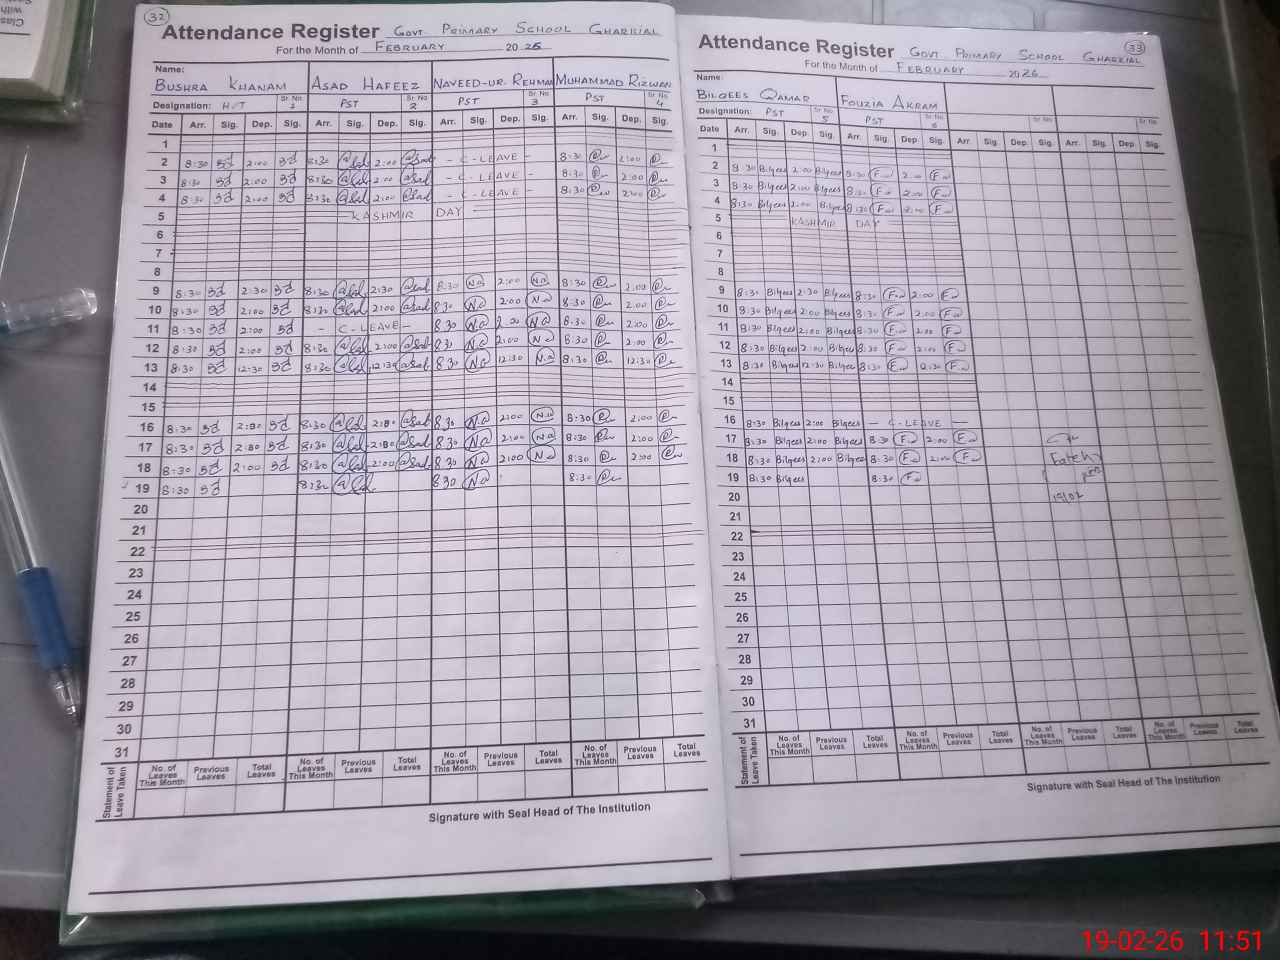 32
Attendance Register GOVT PRIMARY SCHOOL GHARKIAL
For the Month of FEBRUARY 2026
Name:
BUSHRA KHANAM ASAD HAFEEZ NAVEED-UR-REHMAN MUHAMMAD RIZWAN
Designation: H/T Sr. No 1 PST Sr. No 2 PST Sr. No 3 PST Sr. No 4
Date Arr. Sig. Dep. Sig. Arr. Sig. Dep. Sig. Arr. Sig. Dep. Sig. Arr. Sig. Dep. Sig.
1
2 8:30 2:00 8:30 2:00 - C-LEAVE - 8:30 2:00
3 8:30 2:00 8:30 2:00 - C-LEAVE - 8:30 2:00
4 8:30 2:00 8:30 2:00 - C-LEAVE - 8:30 2:00
5 KASHMIR DAY
6
7
8
9 8:30 2:30 8:30 2:30 8:30 Na 2:00 Na 8:30 2:00
10 8:30 2:00 8:30 2:00 8:30 Na 2:00 Na 8:30 2:00
11 8:30 2:00 - C-LEAVE - 8:30 Na 2:00 Na 8:30 2:00
12 8:30 2:00 8:30 2:00 8:30 Na 2:00 Na 8:30 2:00
13 8:30 12:30 8:30 12:30 8:30 Na 12:30 Na 8:30 12:30
14
15
16 8:30 2:00 8:30 2:00 8:30 Na 2:00 Na 8:30 2:00
17 8:30 2:00 8:30 2:00 8:30 Na 2:00 Na 8:30 2:00
18 8:30 2:00 8:30 2:00 8:30 Na 2:00 Na 8:30 2:00
19 8:30 8:30 8:30 Na 8:30
20
21
22
23
24
25
26
27
28
29
30
31
Statement of Leave Taken
No. of Leaves This Month Previous Leaves Total Leaves No. of Leaves This Month Previous Leaves Total Leaves No. of Leaves This Month Previous Leaves Total Leaves No. of Leaves This Month Previous Leaves Total Leaves
Signature with Seal Head of The Institution
33
Attendance Register GOVT PRIMARY SCHOOL GHARKIAL
For the Month of FEBRUARY 2026
Name:
BILQEES QAMAR FOUZIA AKRAM
Designation: PST Sr. No 5 PST Sr. No 6 Sr. No Sr. No
Date Arr. Sig. Dep. Sig. Arr. Sig. Dep. Sig. Arr. Sig. Dep. Sig. Arr. Sig. Dep. Sig.
1
2 8:30 Bilqees 2:00 Bilqees 8:30 2:00
3 8:30 Bilqees 2:00 Bilqees 8:30 2:00
4 8:30 Bilqees 2:00 Bilqees 8:30 2:00
5 KASHMIR DAY
6
7
8
9 8:30 Bilqees 2:30 Bilqees 8:30 2:00
10 8:30 Bilqees 2:00 Bilqees 8:30 2:00
11 8:30 Bilqees 2:00 Bilqees 8:30 2:00
12 8:30 Bilqees 2:00 Bilqees 8:30 2:00
13 8:30 Bilqees 12:30 Bilqees 8:30 12:30
14
15
16 8:30 Bilqees 2:00 Bilqees - C-LEAVE -
17 8:30 Bilqees 2:00 Bilqees 8:30 2:00
18 8:30 Bilqees 2:00 Bilqees 8:30 2:00 Fateh
19 8:30 Bilqees 8:30
20 19/02
21
22
23
24
25
26
27
28
29
30
31
Statement of Leave Taken
No. of Leaves This Month Previous Leaves Total Leaves No. of Leaves This Month Previous Leaves Total Leaves No. of Leaves This Month Previous Leaves Total Leaves No. of Leaves This Month Previous Leaves Total Leaves
Signature with Seal Head of The Institution
19-02-26 11:51